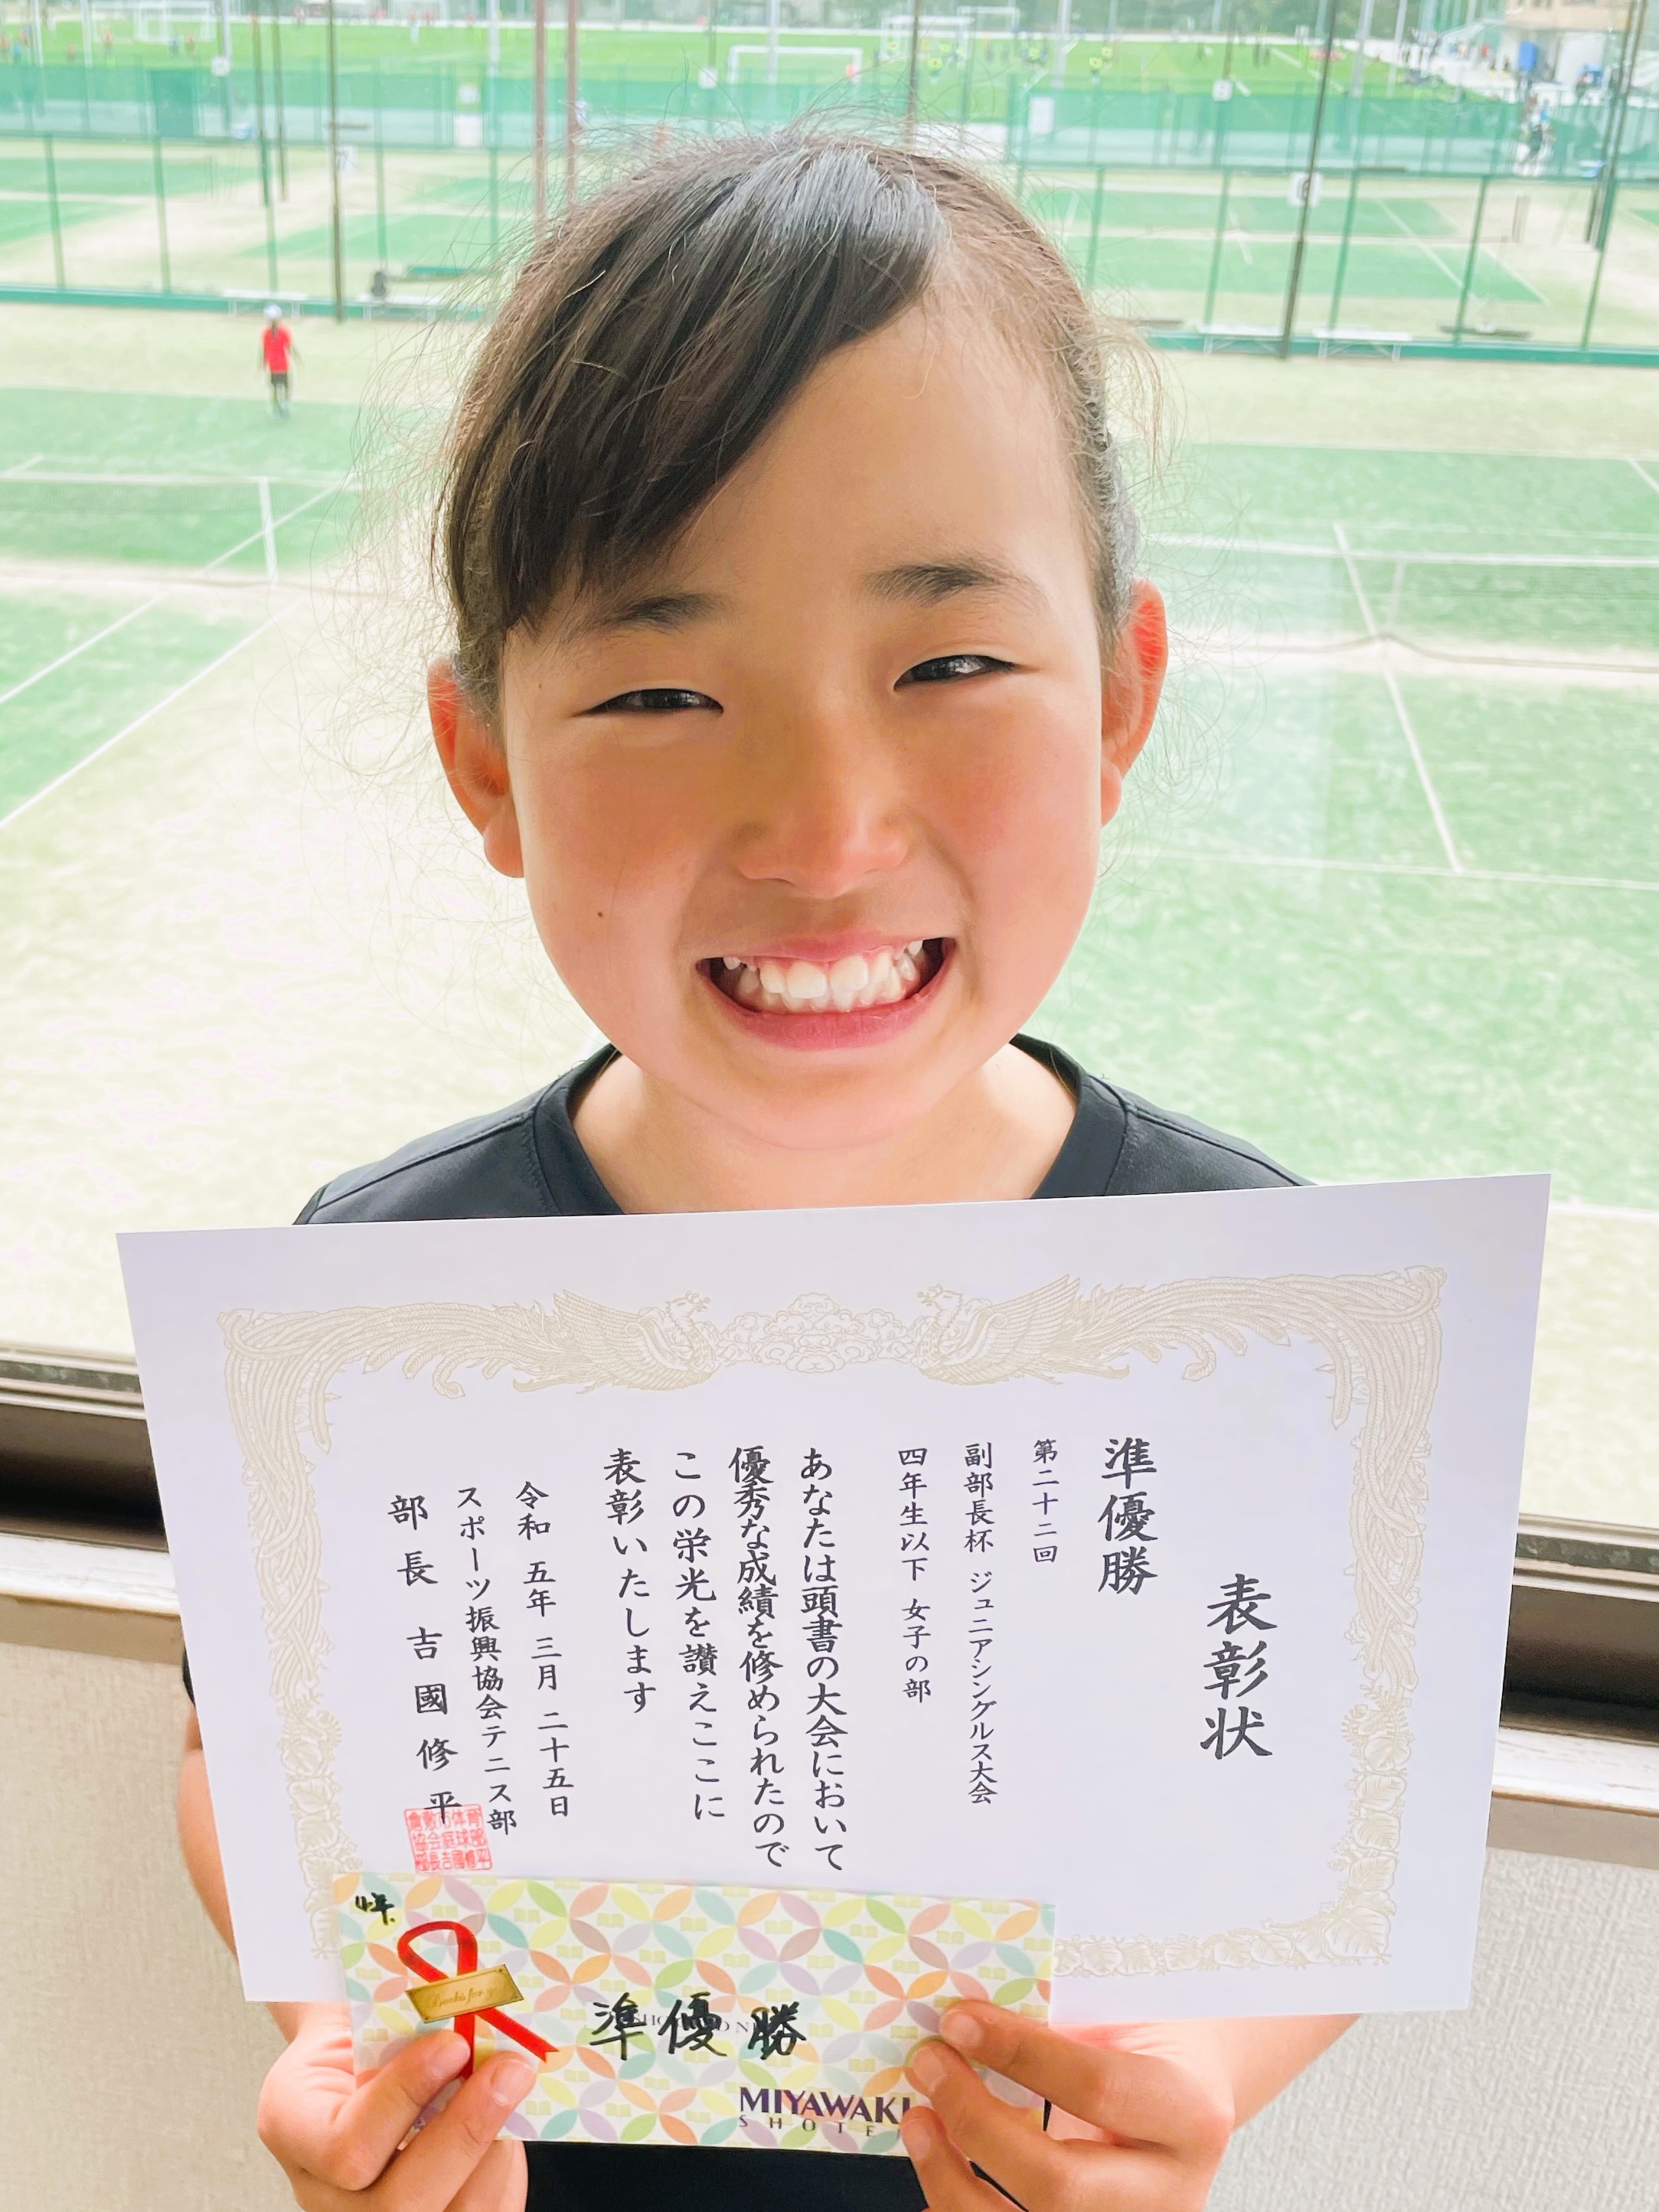 表彰状
準優勝
第二十二回
副部長杯 ジュニアシングルス大会
四年生以下 女子の部
あなたは頭書の大会において
優秀な成績を修められたので
この栄光を讃えここに
表彰いたします
令和 五年 三月 二十五日
スポーツ振興協会テニス部
部長 吉國修平
準優勝
MIYAWAKI